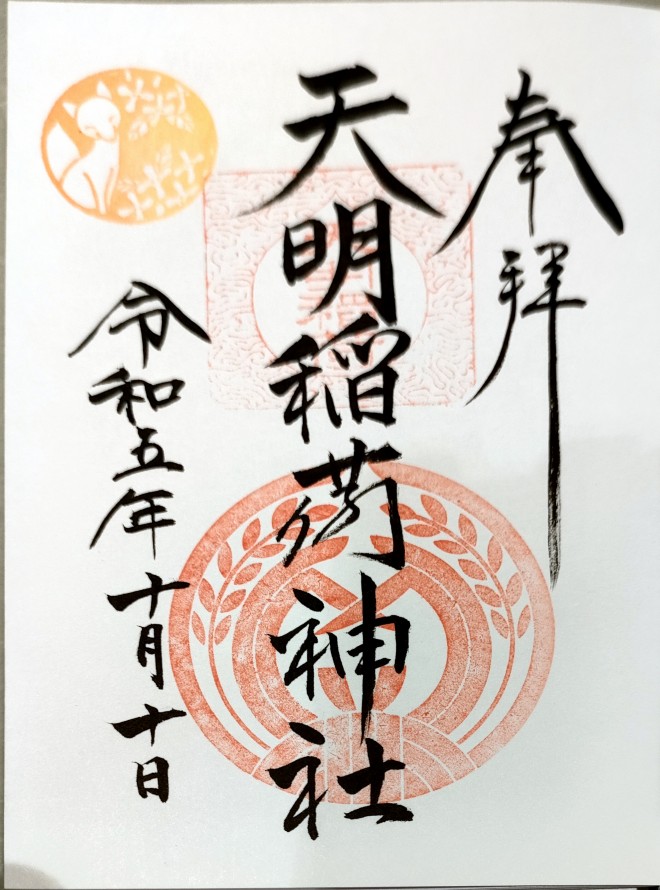 奉拝
天明稲荷神社
令和五年十月十日